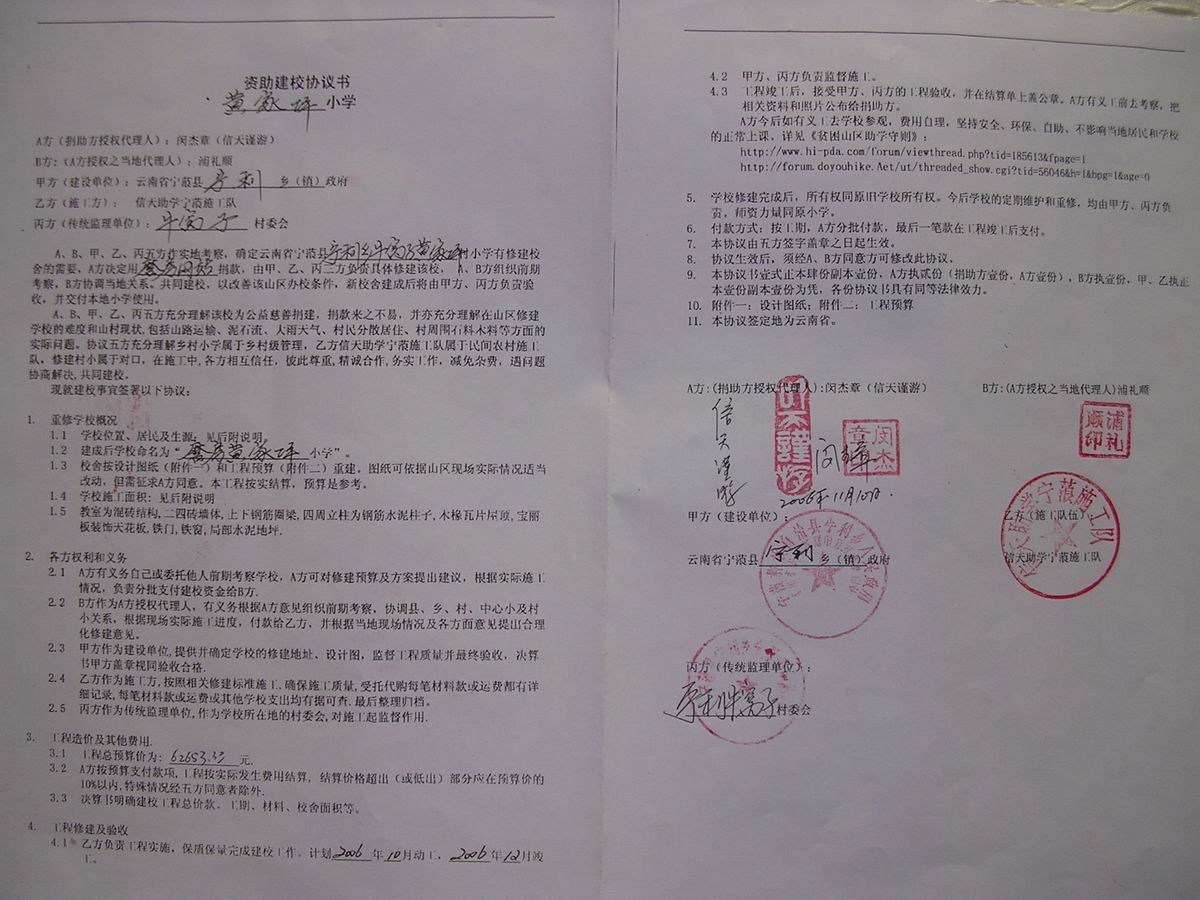 资助建校协议书
黄家坪 小学
A方（捐助方授权代理人）：闵杰章（信天谨游）
B方：（A方授权之当地代理人）：浦礼顺
甲方（建设单位）：云南省宁蒗县 宁利 乡（镇）政府
乙方（施工方）： 信天助学宁蒗施工队
丙方（传统监理单位）：牛窝子 村委会
A、B、甲、乙、丙五方作实地考察，确定云南省宁蒗县宁利乡牛窝子黄家坪村小学有修建校
舍的需要，A方决定用 捐款，由甲、乙、丙三方负责具体修建该校， A、B方组织前期
考察，B方协调当地关系。共同建校，以改善该山区办校条件，新校舍建成后将由甲方、丙方负责验
收，并交付本地小学使用。
A、B、甲、乙、丙五方充分理解该校为公益慈善捐建，捐款来之不易，并亦充分理解在山区修建
学校的难度和山村现状,包括山路运输、泥石流、大雨天气、村民分散居住、村周围石料木料等方面的
实际问题。协议五方充分理解乡村小学属于乡村级管理，乙方信天助学宁蒗施工队属于民间农村施工
队，修建村小属于对口，在施工中,各方相互信任，彼此尊重,精诚合作,务实工作，减免杂费，遇问题
协商解决,共同建校。
现就建校事宜签署以下协议：
1. 重修学校概况
1.1 学校位置、居民及生源：见后附说明
1.2 建成后学校命名为“ 黄家坪 小学”。
1.3 校舍按设计图纸（附件一）和工程预算（附件二）重建。图纸可依据山区现场实际情况适当
改动，但需征求A方同意。本工程按实结算，预算是参考。
1.4 学校施工面积：见后附说明
1.5 教室为混砖结构,二四砖墙体,上下钢筋圈梁,四周立柱为钢筋水泥柱子,木椽瓦片屋顶,宝丽
板装饰天花板,铁门,铁窗,局部水泥地坪.
2. 各方权利和义务
2.1 A方有义务自己或委托他人前期考察学校，A方可对修建预算及方案提出建议，根据实际施工
情况，负责分批支付建校资金给B方.
2.2 B方作为A方授权代理人，有义务根据A方意见组织前期考察，协调县、乡、村、中心小及村
小关系，根据现场实际施工进度，付款给乙方，并根据当地现场情况及各方面意见提出合理
化修建意见。
2.3 甲方作为建设单位,提供并确定学校的修建地址、设计图，监督工程质量并最终验收，决算
书甲方盖章视同验收合格.
2.4 乙方作为施工方,按照相关修建标准施工,确保施工质量,受托代购每笔材料款或运费都有详
细记录,每笔材料款或运费或其他学校支出均有据可查.最后整理归档。
2.5 丙方作为传统监理单位,作为学校所在地的村委会,对施工起监督作用.
3. 工程造价及其他费用.
3.1 工程总预算价为: 62653.33 元.
3.2 A方按预算支付款项,工程按实际发生费用结算，结算价格超出（或低出）部分应在预算价的
10%以内,特殊情况经五方同意者除外.
3.3 决算书明确建校工程总价款、工期、材料、校舍面积等。
4. 工程修建及验收
4.1 乙方负责工程实施，保质保量完成建校工作。计划2006年10月动工，2006年12月竣
工。
4.2 甲方、丙方负责监督施工。
4.3 工程竣工后，接受甲方、丙方的工程验收，并在结算单上盖公章。A方有义工前去考察，把
相关资料和照片公布给捐助方。
A方今后如有义工去学校参观，费用自理，坚持安全、环保、自助、不影响当地居民和学校
的正常上课，详见《贫困山区助学守则》：
http://www.hi-pda.com/forum/viewthread.php?tid=185613&fpage=1
http://forum.doyouhike.Aet/ut/threaded_show.cgi?tid=56046&h=1&bpg=1&age=0
5. 学校修建完成后，所有权同原旧学校所有权。今后学校的定期维护和重修，均由甲方、丙方负
责，师资力量同原小学。
6. 付款方式：按工期，A方分批付款，最后一笔款在工程竣工后支付。
7. 本协议由五方签字盖章之日起生效。
8. 协议生效后，须经A、B方同意方可修改此协议。
9. 本协议书壹式正本肆份副本壹份，A方执贰份（捐助方壹份，A方壹份），B方执壹份，甲、乙执正
本壹份副本壹份为凭，各份协议书具有同等法律效力。
10. 附件一：设计图纸；附件二：工程预算
11. 本协议签定地为云南省。
A方:(捐助方授权代理人):闵杰章（信天谨游） B方:(A方授权之当地代理人)浦礼顺
信天谨游
闵杰章
闵杰章
浦礼顺印
2006年11月10日.
甲方（建设单位）：
乙方（施工队伍）
云南省宁蒗县 宁利 乡（镇）政府
信天助学宁蒗施工队
信天助学宁蒗施工队
丙方（传统监理单位）：
宁利牛窝子村委会